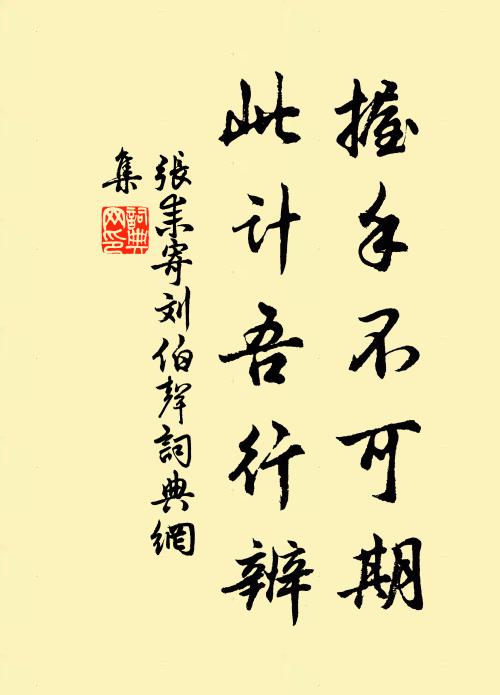 握手不可期
此计吾行辨
張耒寄刘伯聲詞典網
集
詞典網印